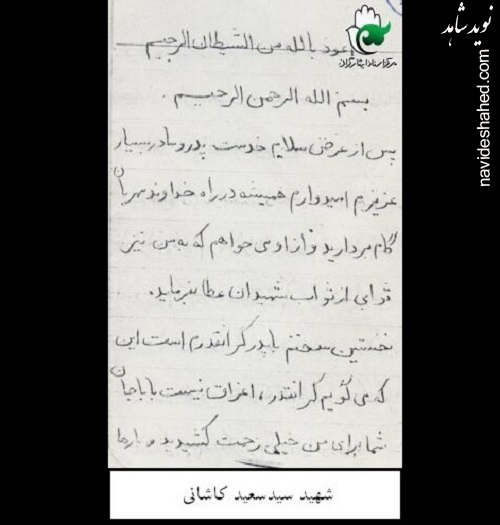 نوید شاهد
navideshahed.com
مرکز اسناد ایثارگران
اعوذ بالله من الشیطان الرجیم
بسم الله الرحمن الرحیم .
پس از عرض سلام خدمت پدر و مادر بسیار
عزیزم امیدوارم همیشه در راه خداوند مهربان
گام بردارید و از او می خواهم که به من نیز
ثوابی از ثواب شهیدان عطا بفرماید.
نخستین سخنم با پدر گرانقدرم است این
که می گویم گرانقدر، اغراق نیست باباجان
شما برای من خیلی زحمت کشیدید و بارها
شهید سیدسعید کاشانی